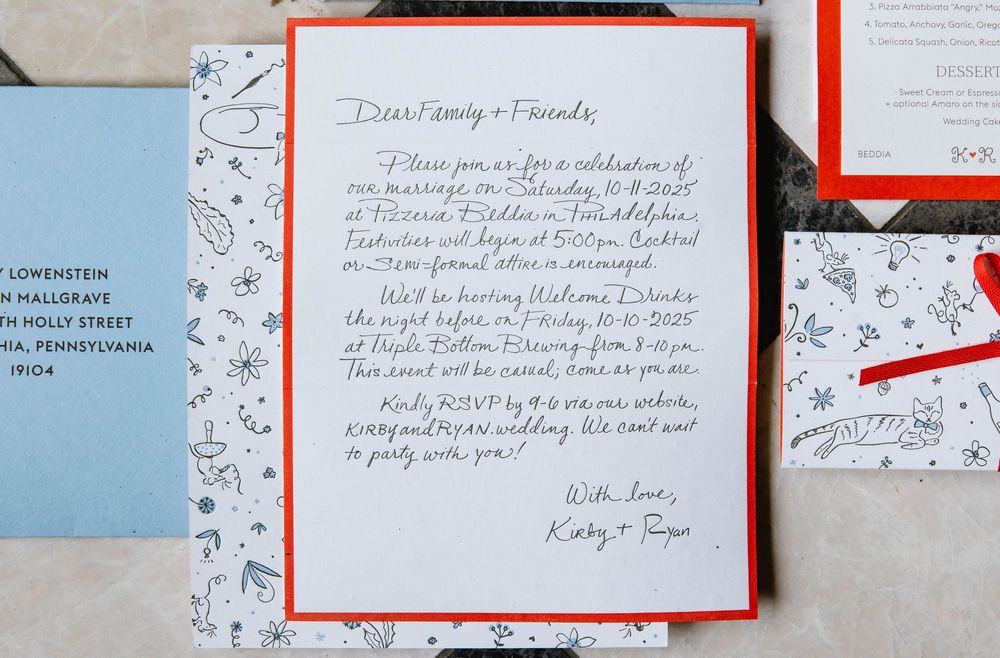 LOWENSTEIN
MALLGRAVE
HOLLY STREET
PENNSYLVANIA
19104
Dear Family + Friends,
Please join us for a celebration of
our marriage on Saturday, 10-11-2025
at Pizzeria Beddia in Philadelphia.
Festivities will begin at 5:00pm. Cocktail
or Semi-formal attire is encouraged.
We'll be hosting Welcome Drinks
the night before on Friday, 10-10-2025
at Triple Bottom Brewing from 8-10pm.
This event will be casual; come as you are.
Kindly RSVP by 9-6 via our website,
KIRBYandRYAN.wedding. We can't wait
to party with you!
With love,
Kirby + Ryan
3. Pizza Arrabbiata "Angry,"
4. Tomato, Anchovy, Garlic,
5. Delicata Squash, Onion,
DESSERT
Sweet Cream or
+ optional Amaro on the
Wedding
BEDDIA
K♥R